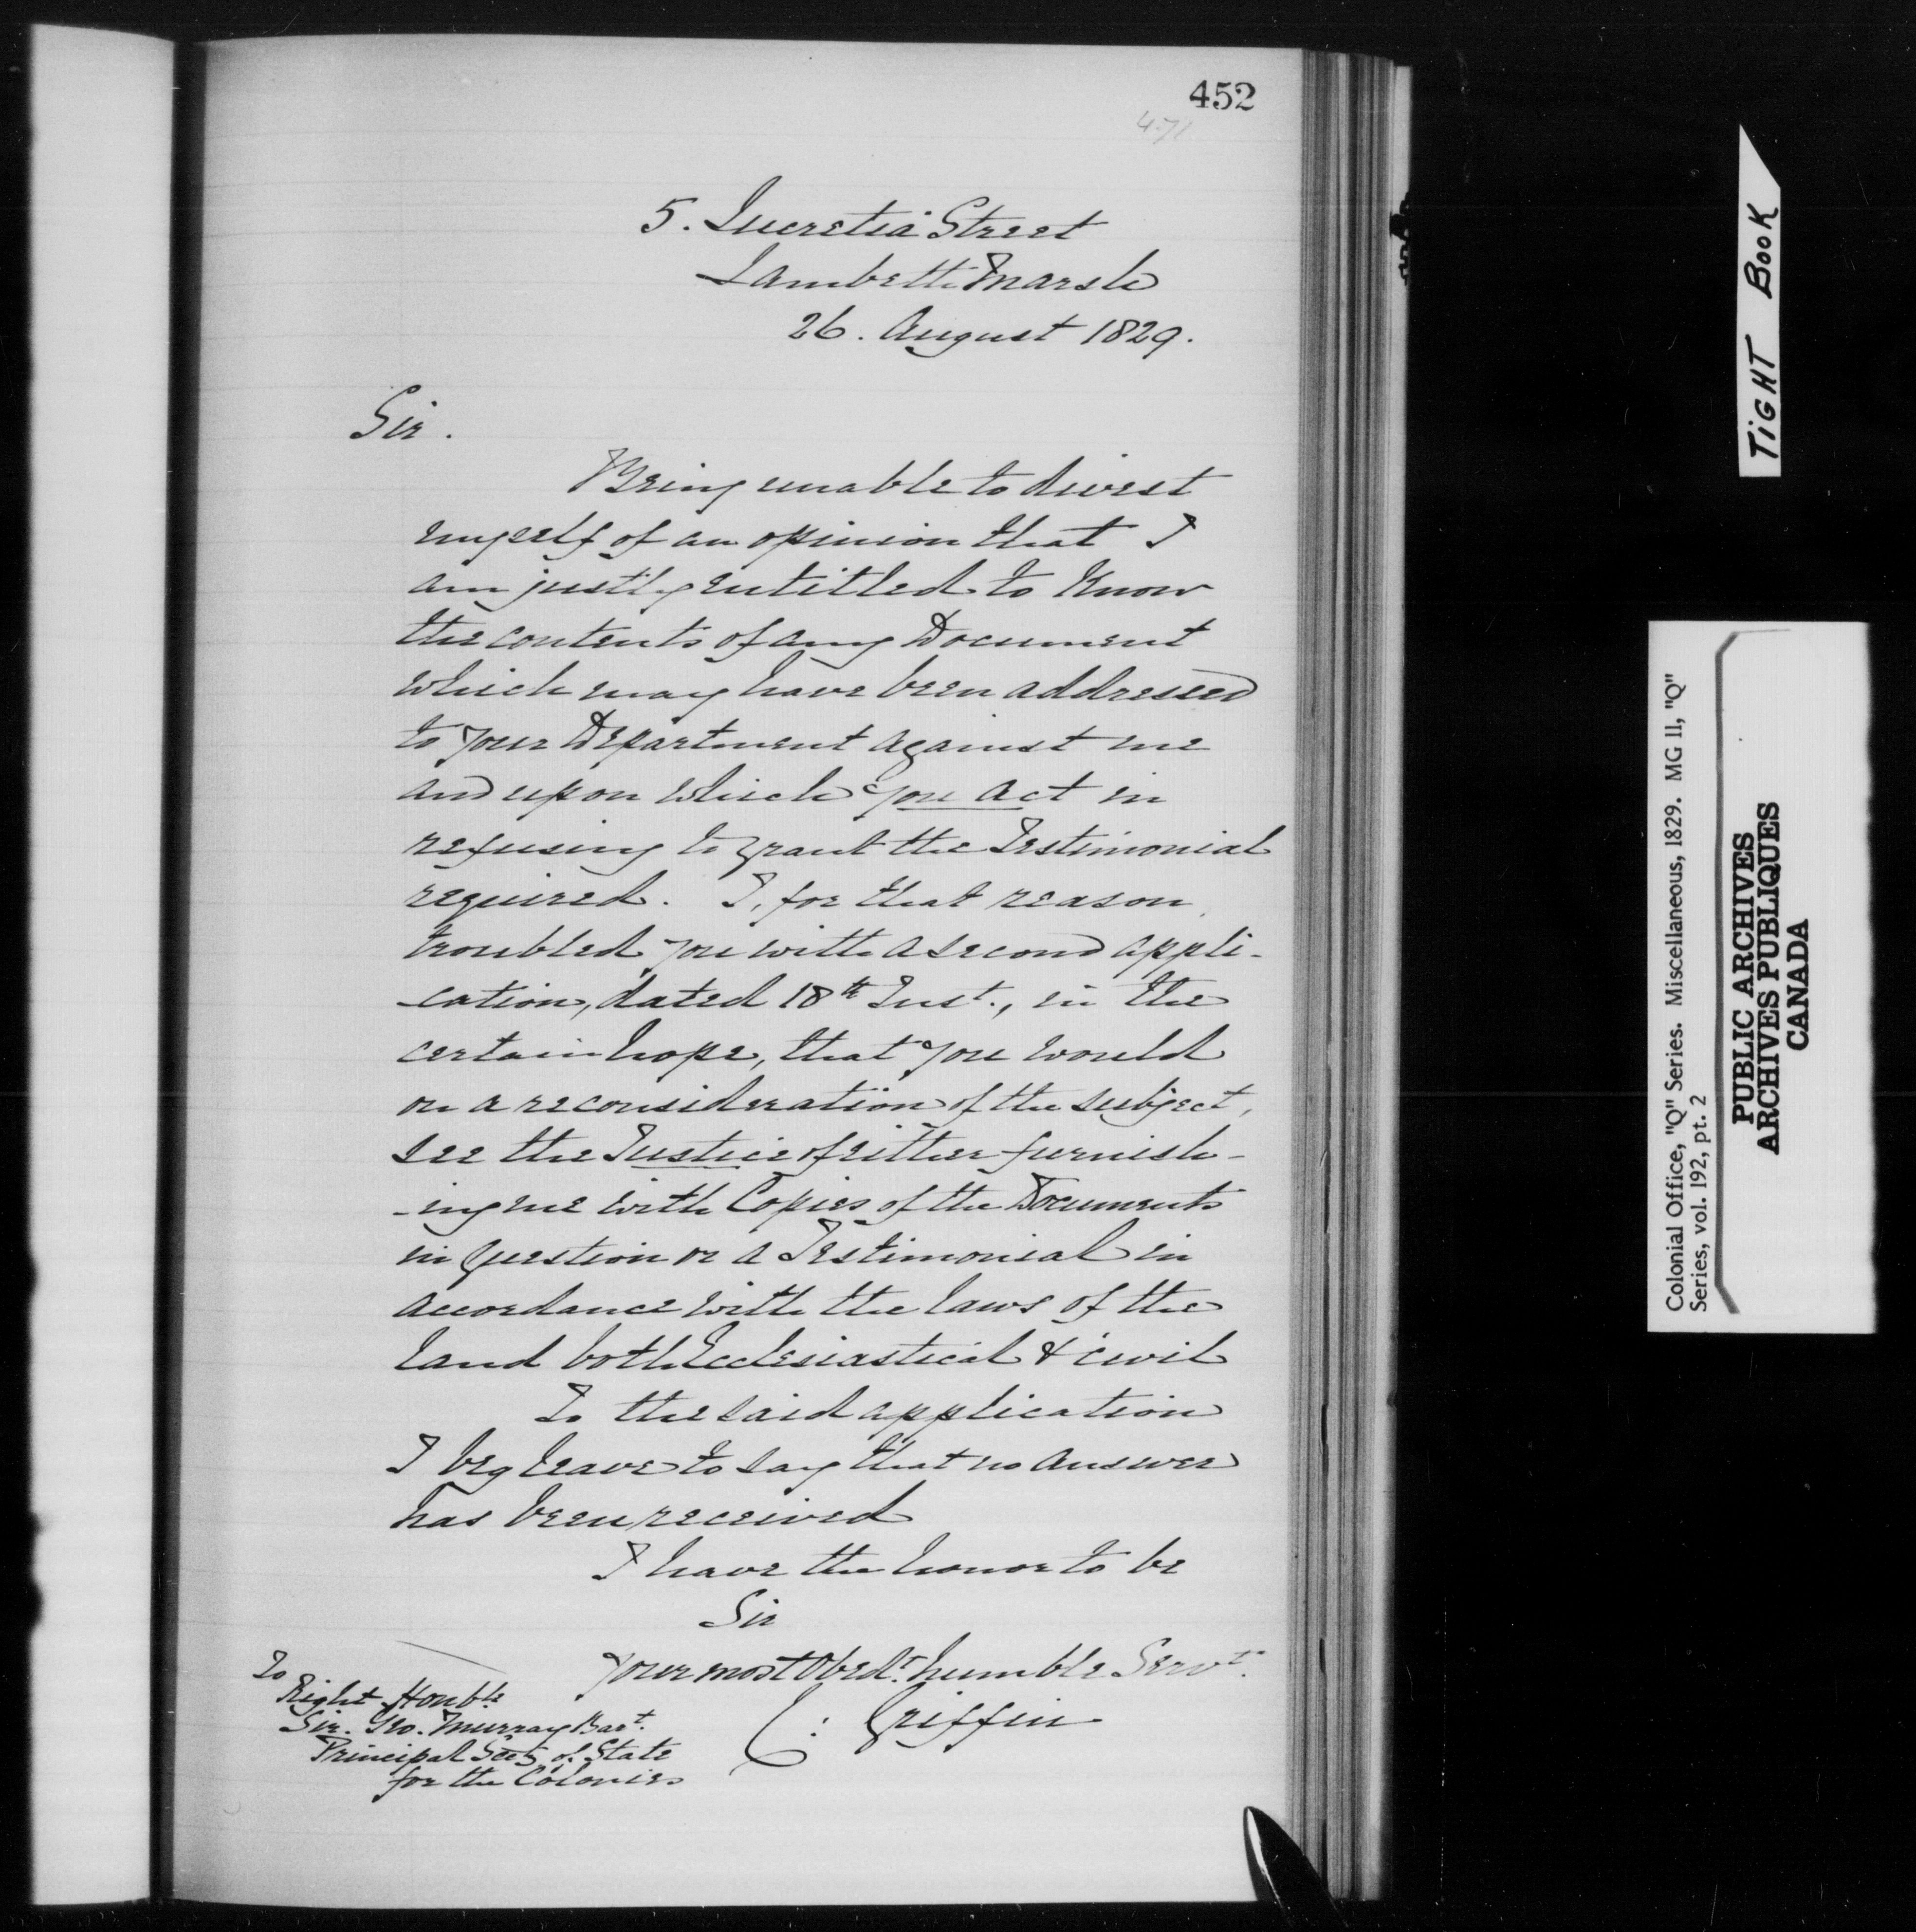 452
471
5. Lucretia Street
Lambeth Marsh
26. August 1829.
Sir.
Being unable to divest
myself of an opinion that I
am justly entitled to Know
the contents of any Document
which may have been addressed
to your Department against me
and upon which you act in
refusing to grant the Testimonial
required. I, for that reason,
troubled you with a second appli-
-cation, dated 18th Inst., in the
certain hope, that you would
on a reconsideration of the subject,
see the Justice of either furnish-
-ing me with Copies of the Documents
in Question or a Testimonial in
accordance with the laws of the
land both Ecclesiastical & civil
To the said application
I beg leave to say that no answer
has been received
I have the honor to be
Sir
your most Obedt. humble Servt.
C: Griffin
To
Right Honble
Sir. Geo. Murray Bart.
Principal Secy of State
for the Colonies
TIGHT BOOK
Colonial Office, "Q" Series. Miscellaneous, 1829. MG 11, "Q"
Series, vol. 192, pt. 2
PUBLIC ARCHIVES
ARCHIVES PUBLIQUES
CANADA